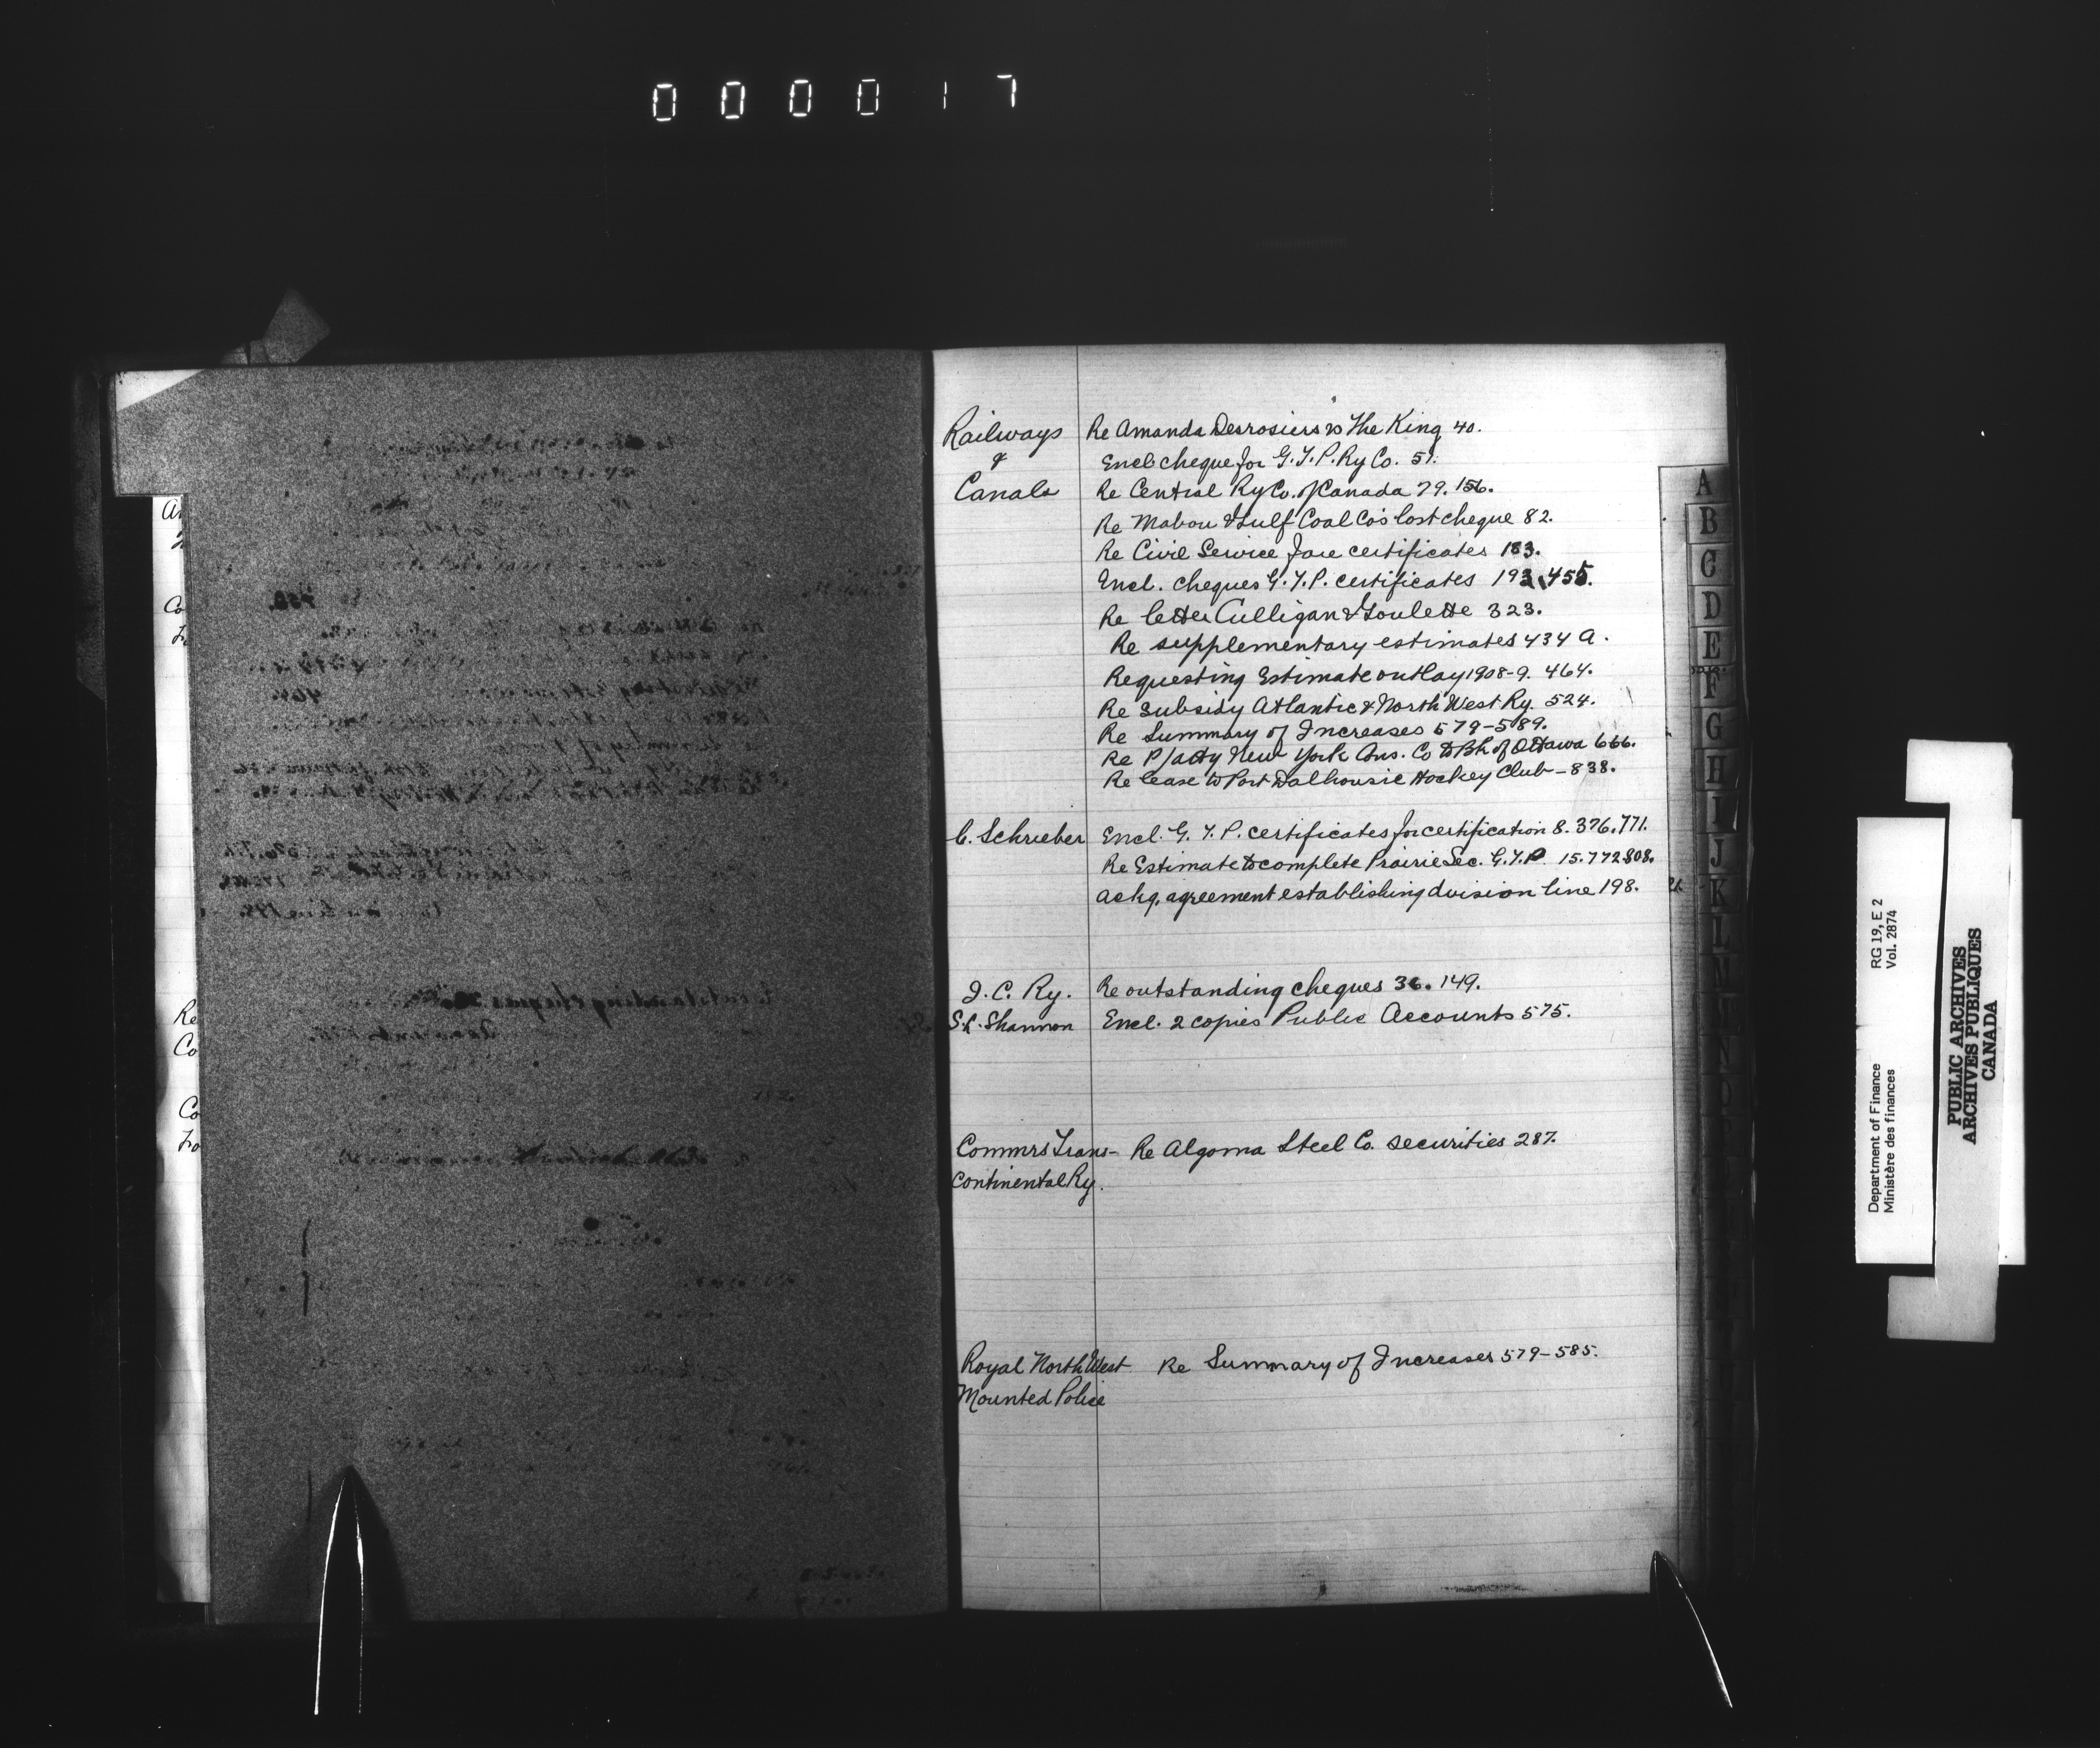 000017
Railways
&
Canals
Re Amanda Desrosiers vs The King 40.
Encl. cheque for G.T.P. Ry Co. 51.
Re Central Ry Co. of Canada 79. 156.
Re Mabou & Gulf Coal Co's lost cheque 82.
Re Civil Service fare certificates 183.
Encl. cheques G.T.P. certificates 193, 455.
Re letter Culligan & Goulette 323.
Re supplementary estimates 434 A.
Requesting Estimate outlay 1908-9. 464.
Re Subsidy Atlantic & North West Ry. 524.
Re Summary of Increases 579-589.
Re P/atty New York Ins. Co to Bk of Ottawa 666.
Re lease to Port Dalhousie Hockey Club - 838.
C. Schrieber Encl. G.T.P. certificates for certification 8. 376. 771.
Re Estimate to complete Prairie Sec. G.T.P. 15. 772. 808.
Ackg. agreement establishing division line 198.
I. C. Ry. Re outstanding cheques 36. 149.
S.L. Shannon Encl. 2 copies Public Accounts 575.
Commrs Trans- Re Algoma Steel Co. securities 287.
continental Ry.
Royal North West Re Summary of Increases 579-585.
Mounted Police
A
B
C
D
E
F
G
H
I
J
K
L
M
N
O
Department of Finance RG 19, E 2
Ministère des finances Vol. 2874
PUBLIC ARCHIVES
ARCHIVES PUBLIQUES
CANADA